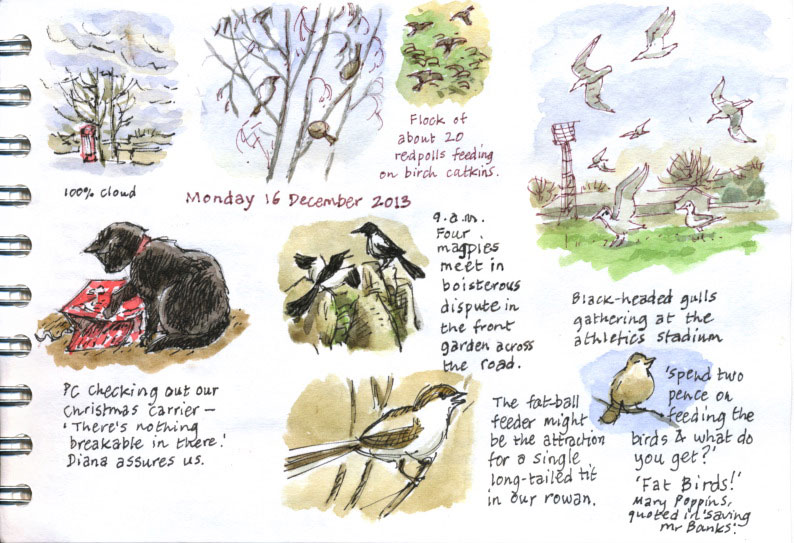 Flock of
about 20
redpolls feeding
on birch catkins.
100% cloud
Monday 16 December 2013
9.a.m.
Four
magpies
meet in
boisterous
dispute in
the front
garden across
the road.
Black-headed gulls
gathering at the
athletics stadium
PC checking out our
Christmas carrier –
'There's nothing
breakable in there.'
Diana assures us.
The fat-ball
feeder might
be the attraction
for a single
long-tailed tit
in our rowan.
'spend two
pence on
feeding the
birds & what do
you get?'
'Fat Birds!'
Mary Poppins,
quoted in 'saving
mr Banks'.